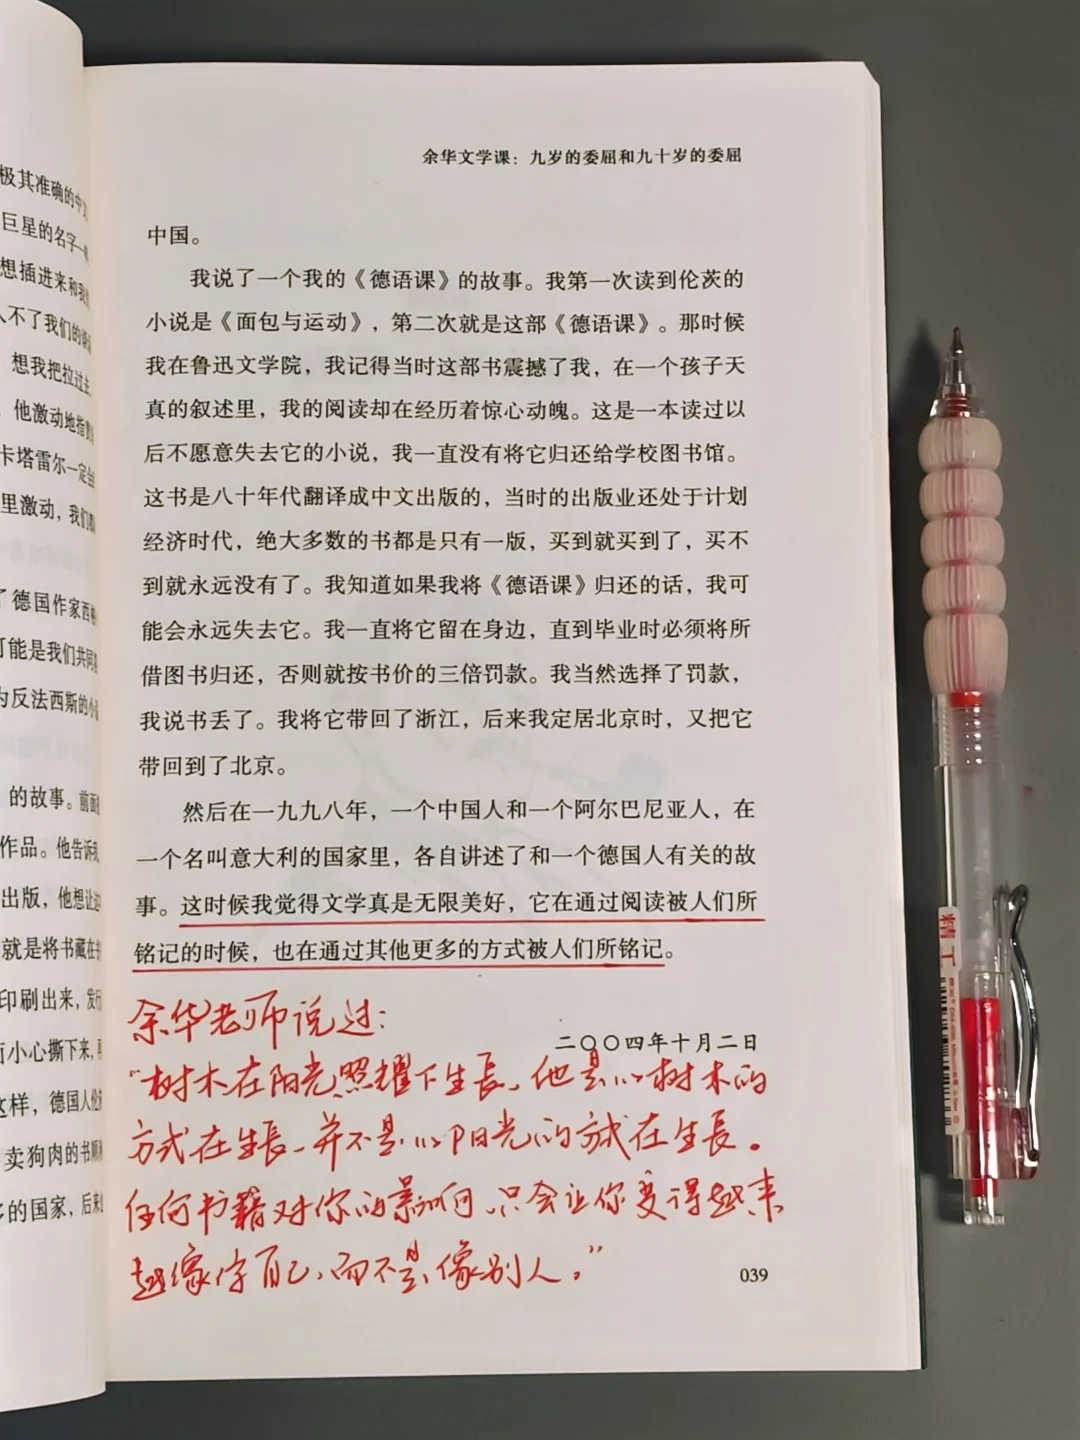 极其准确的中文
巨星的名字一
想插进来和我
人不了我们的
想我把拉过主
他激动地指
卡塔雷尔一定会
里激动，我们都
了德国作家西
可能是我们共同
为反法西斯的小
的故事。前面
作品。他告诉我
出版，他想让
就是将书藏在
印刷出来，发行
小心撕下来，
这样，德国人
卖狗肉的书
多的国家，后来
余华文学课：九岁的委屈和九十岁的委屈
中国。
我说了一个我的《德语课》的故事。我第一次读到伦茨的
小说是《面包与运动》，第二次就是这部《德语课》。那时候
我在鲁迅文学院，我记得当时这部书震撼了我，在一个孩子天
真的叙述里，我的阅读却在经历着惊心动魄。这是一本读过以
后不愿意失去它的小说，我一直没有将它归还给学校图书馆。
这书是八十年代翻译成中文出版的，当时的出版业还处于计划
经济时代，绝大多数的书都是只有一版，买到就买到了，买不
到就永远没有了。我知道如果我将《德语课》归还的话，我可
能会永远失去它。我一直将它留在身边，直到毕业时必须将所
借图书归还，否则就按书价的三倍罚款。我当然选择了罚款，
我说书丢了。我将它带回了浙江，后来我定居北京时，又把它
带回到了北京。
然后在一九九八年，一个中国人和一个阿尔巴尼亚人，在
一个名叫意大利的国家里，各自讲述了和一个德国人有关的故
事。这时候我觉得文学真是无限美好，它在通过阅读被人们所
铭记的时候，也在通过其他更多的方式被人们所铭记。
余华老师说过：
二〇〇四年十月二日
“树木在阳光照耀下生长、他是以树木的
方式在生长、并不是以阳光的方式在生长。
任何书籍对你的影响、只会让你变得越来
越像你自己、而不是像别人。”
039
精工